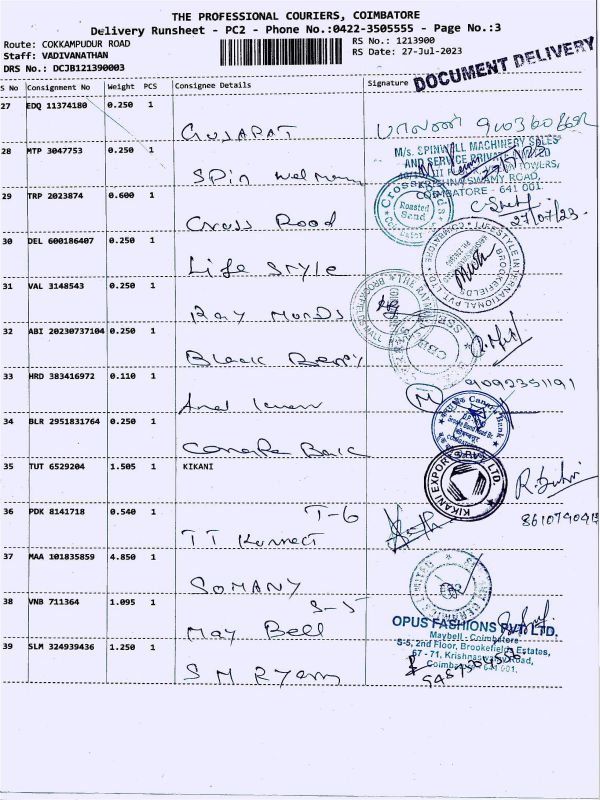 THE PROFESSIONAL COURIERS, COIMBATORE
Delivery Runsheet - PC2 - Phone No.:0422-3505555 - Page No.:3
Route: COKKAMPUDUR ROAD
Staff: VADIVANATHAN
DRS No.: DCJB121390003
RS No.: 1213900
RS Date: 27-Jul-2023
DOCUMENT DELIVERY
S No Consignment No Weight PCS Consignee Details Signature
27 EDQ 11374180 0.250 1
GUJARAT
28 MTP 3047753 0.250 1
M/s. SPINWELL MACHINERY SALES
AND SERVICE PRIVATE
TOWERS,
KRISHNASWAMY ROAD,
COIMBATORE - 641 001.
Spin
29 TRP 2023874 0.600 1
Crossroads
Roasted
Sand
27/07/23.
Cross Road
30 DEL 600186407 0.250 1
LIFESTYLE INTERNATIONAL PVT. LTD.
BROOKEFIELDS
COIMBATORE
Life Style
31 VAL 3148543 0.250 1
Ray Monds
32 ABI 20230737104 0.250 1
Black Berry
33 HRD 383416972 0.110 1
M 9092351191
34 BLR 2951831764 0.250 1
Canara Bank
Canara Bank
35 TUT 6529204 1.505 1 KIKANI
KIKANI EXPORTS PVT. LTD.
T-6
36 PDK 8141718 0.540 1
TT Konnect
37 MAA 101835859 4.850 1
SOMANY
S-5
38 VNB 711364 1.095 1
OPUS FASHIONS PVT LTD.
Maybell - Coimbatore
S-5, 2nd Floor, Brookefields Estates,
67 - 71, Krishnaswamy Road,
Coimbatore - 641 001.
May Bell
39 SLM 324939436 1.250 1
S M